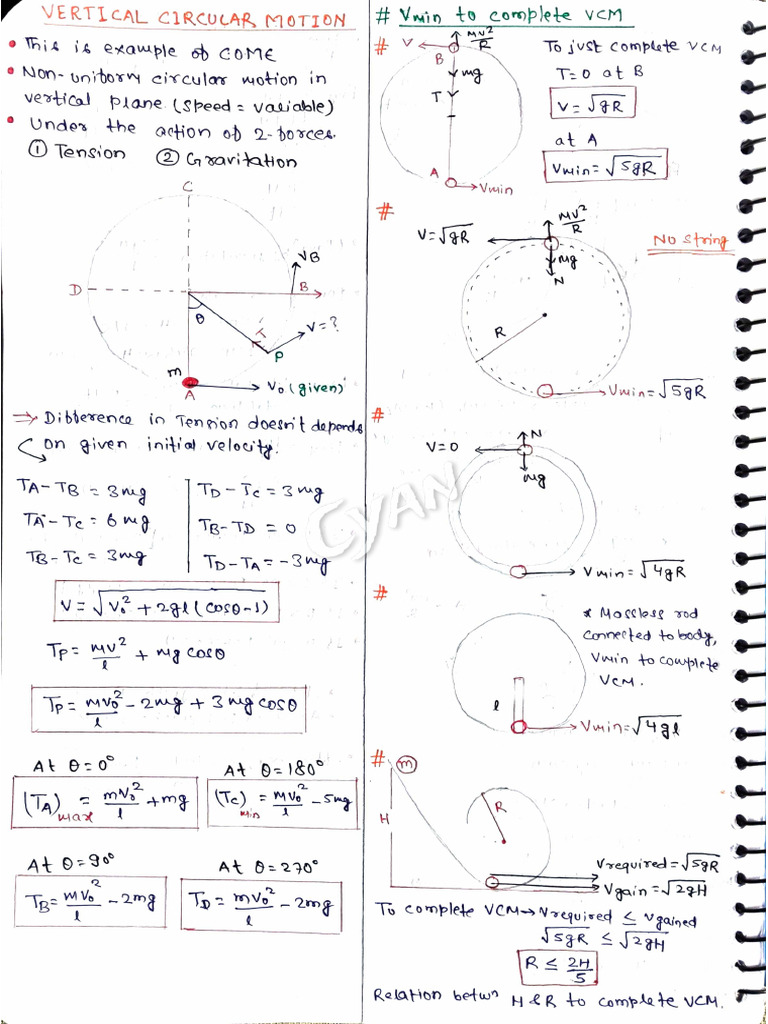 VERTICAL CIRCULAR MOTION
• This is example of COME
• Non-uniform circular motion in
vertical plane (speed = variable)
• Under the action of 2-forces.
① Tension ② Gravitation
C
VB
D
B
θ
T
V=?
P
m
A
V₀ (given)
⇒ Difference in Tension doesn't depends
on given initial velocity.
TA - TB = 3mg
TA - TC = 6mg
TB - TC = 3mg
TD - TC = 3mg
TB - TD = 0
TD - TA = -3mg
V = √(V₀² + 2gl (cosθ-1))
TP = mv²/l + mg cosθ
TP = mv₀²/l - 2mg + 3mg cosθ
At θ = 0°
(TA)max = mv₀²/l + mg
At θ = 180°
(TC)min = mv₀²/l - 5mg
At θ = 90°
TB = mv₀²/l - 2mg
At θ = 270°
TD = mv₀²/l - 2mg
# Vmin to complete VCM
#
V
B
MV²/R
mg
T
A
Vmin
To just complete VCM
T = 0 at B
V = √gR
at A
Vmin = √5gR
#
V = √gR
MV²/R
mg
N
No string
R
Vmin = √5gR
#
V = 0
N
mg
Vmin = √4gR
#
* Massless rod
connected to body,
Vmin to complete
VCM.
l
Vmin = √4gl
#
m
H
R
Vrequired = √5gR
Vgain = √2gH
To complete VCM → Vrequired ≤ Vgained
√5gR ≤ √2gH
R ≤ 2H/5
Relation betwn H & R to complete VCM.
CYAN